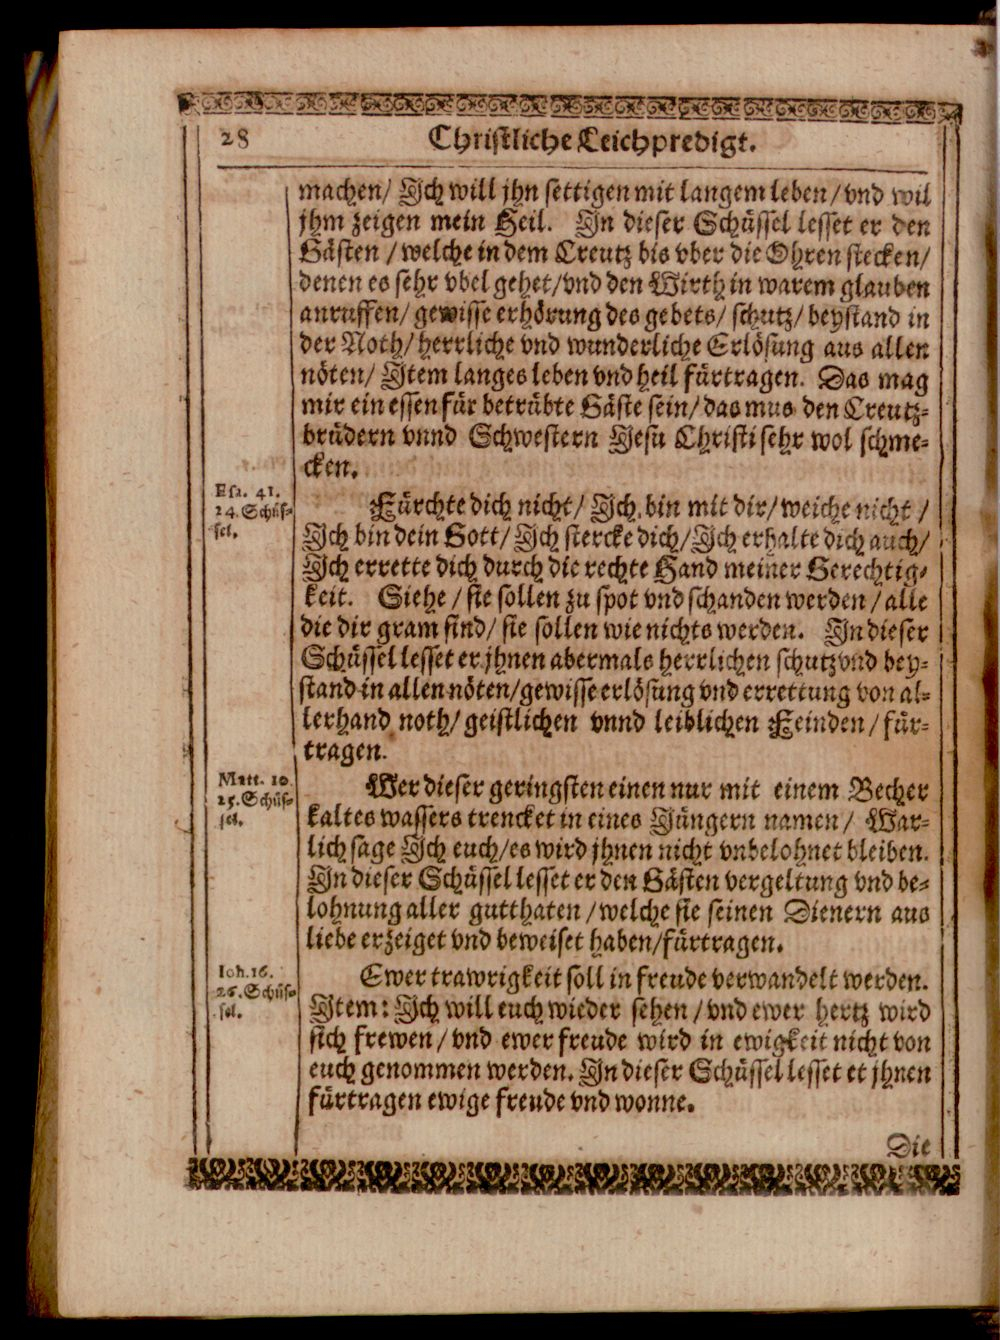 28
Christliche Leichpredigt.
machen/ Ich will jhn settigen mit langem leben/ vnd wil
jhm zeigen mein Heil. In dieser Schüssel lesset er den
Gästen / welche in dem Creutz bis vber die Ohren stecken/
denen es sehr vbel gehet/vnd den Wirth in warem glauben
anruffen/ gewisse erhörung des gebets/ schutz/ beystand in
der Noth/ herrliche vnd wunderliche Erlösung aus allen
nöten/ Item langes leben vnd heil fürtragen. Das mag
mir ein essen für betrübte Gäste sein/ das mus den Creutz-
brüdern vnnd Schwestern Jesu Christi sehr wol schme-
cken.
Esa. 41.
24. Schüs-
sel.
Fürchte dich nicht/ Ich bin mit dir/ weiche nicht /
Ich bin dein Gott/ Ich stercke dich/ Ich erhalte dich auch/
Ich errette dich durch die rechte Hand meiner Gerechtig-
keit. Siehe / sie sollen zu spot vnd schanden werden / alle
die dir gram sind/ sie sollen wie nichts werden. In dieser
Schüssel lesset er jhnen abermals herrlichen schutz vnd bey-
stand in allen nöten/gewisse erlösung vnd errettung von al-
lerhand noth/ geistlichen vnnd leiblichen Feinden / für-
tragen.
Matt. 10
25. Schüs-
sel.
Wer dieser geringsten einen nur mit einem Becher
kaltes wassers trencket in eines Jüngern namen/ War-
lich sage Ich euch/es wird jhnen nicht vnbelohnet bleiben.
In dieser Schüssel lesset er den Gästen vergeltung vnd be-
lohnung aller gutthaten / welche sie seinen Dienern aus
liebe erzeiget vnd beweiset haben/fürtragen.
Ioh. 16.
26. Schüs-
sel.
Ewer trawrigkeit soll in freude verwandelt werden.
Item: Ich will euch wieder sehen / vnd ewer hertz wird
sich frewen / vnd ewer freude wird in ewigkeit nicht von
euch genommen werden. In dieser Schüssel lesset et jhnen
fürtragen ewige freude vnd wonne.
Die